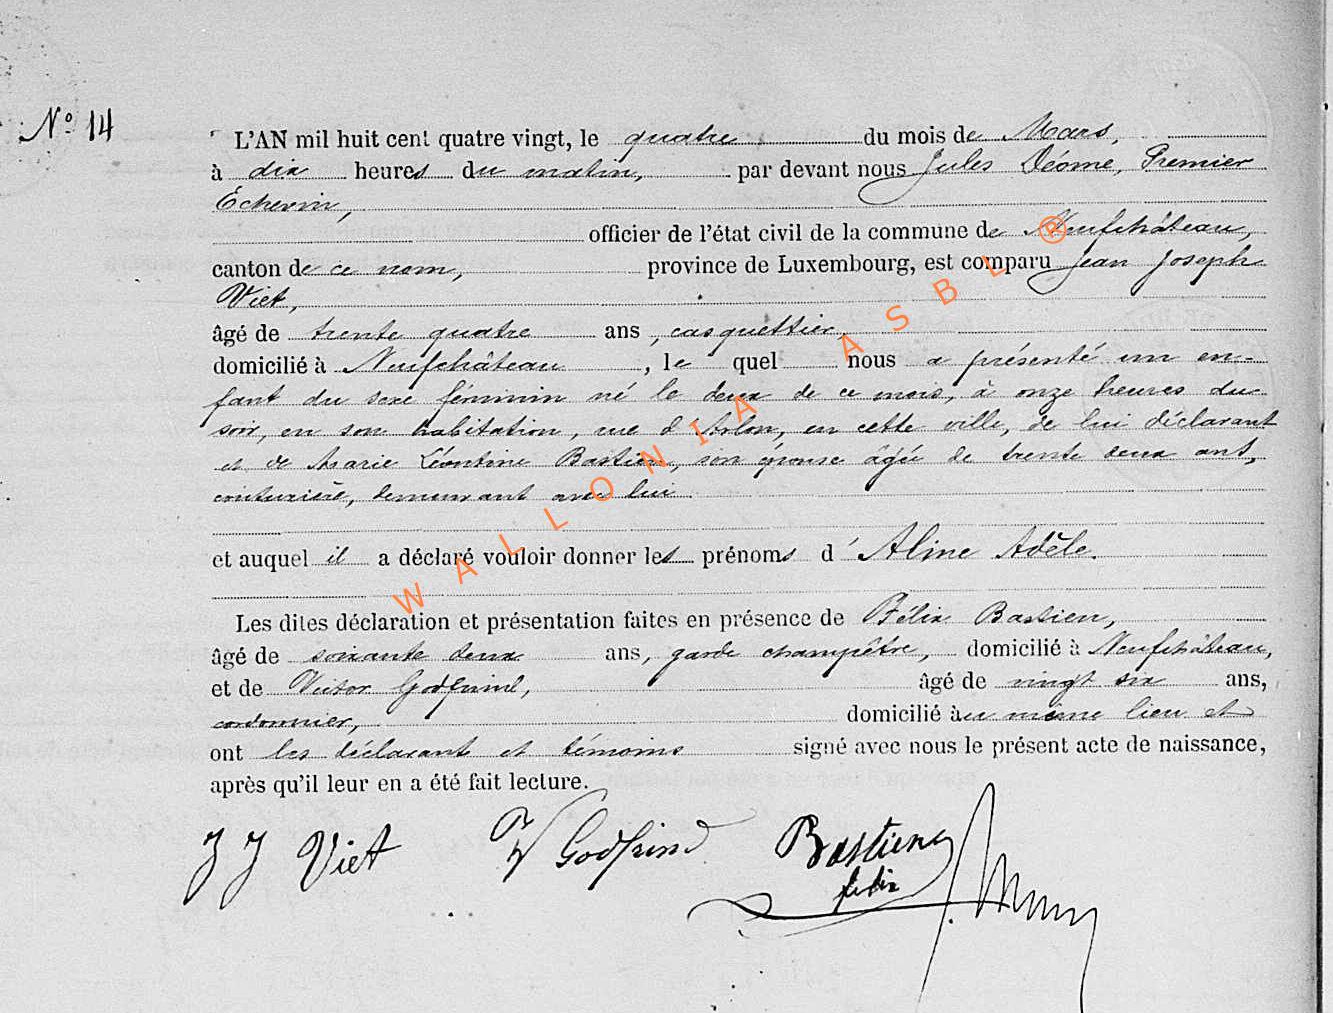 N° 14
L'AN mil huit cent quatre vingt, le quatre du mois de Mars,
à dix heures du matin, par devant nous Jules Déome, Premier
Échevin,
officier de l'état civil de la commune de Neufchâteau,
canton de ce nom, province de Luxembourg, est comparu Jean Joseph
Viet,
âgé de trente quatre ans, casquettier,
domicilié à Neufchâteau, le quel nous a présenté un en-
fant du sexe féminin né le deux de ce mois, à onze heures du
soir, en son habitation, rue d'Arlon, en cette ville, de lui déclarant
et de Marie Léontine Bastien, son épouse âgée de trente deux ans,
couturière, demeurant avec lui
et auquel il a déclaré vouloir donner les prénoms d'Aline Adèle.
Les dites déclaration et présentation faites en présence de Félix Bastien,
âgé de soixante deux ans, garde champêtre, domicilié à Neufchâteau,
et de Victor Godfrind, âgé de vingt six ans,
cordonnier, domicilié au même lieu et
ont les déclarant et témoins signé avec nous le présent acte de naissance,
après qu'il leur en a été fait lecture.
J J Viet V Godfrind Bastien
felix
WALLONIA ASBL ®